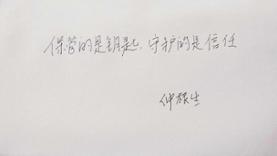 保管的是钥匙，守护的是信任